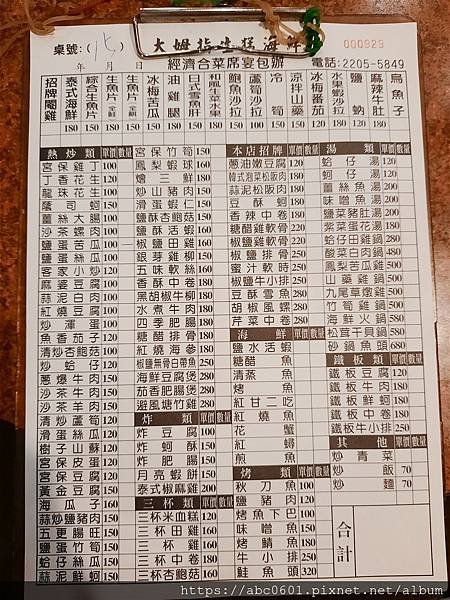 桌號:
大姆指生猛海鮮
000929
年 月 日
經濟合菜席宴包辦
電話:2205-5849
招牌鬧雞 180
泰式海鮮 180
綜合生魚片 150
生魚片
生魚片
冰梅苦瓜 120
油雞腿 180
日式雪魚肝 180
和風生菜水果
鮑魚沙拉 180
蘆筍沙拉 150
冷筍
涼拌山藥 150
冰梅番茄 120
水果蝦沙拉 180
鹽蚋 120
麻辣牛肚 180
烏魚子
熱炒類 單價 數量
宮保雞丁 100
丁香花生 120
龍珠花生 100
蔭豉蚵 150
薑絲大腸 150
沙茶螺肉 150
鹽蛋苦瓜
鹽蛋絲瓜 100
客家小炒 120
麻婆豆腐 100
蒜泥白肉 100
紅燒豆腐 100
炒滑蛋 100
魚香茄子 120
清炒杏鮑菇 100
炒蛤仔 120
蔥爆牛肉 150
沙茶牛肉 150
沙茶羊肉 150
清炒蘆筍 150
滑蛋絲瓜 120
樹子山蘇 120
宮保皮蛋 120
宮保豆腐 120
黃金豆腐 150
海瓜子 160
蒜炒鹽豬肉 150
五更腸旺 150
鹽蛋竹筍 150
蛤仔絲瓜 150
蒜泥鮮蚵 100
宮保竹筍 150
鳳梨蝦球 160
燴三鮮 180
炒山豬肉 150
滑蛋蝦仁 150
鹽酥杏鮑菇 150
鹽酥活蝦
椒鹽田雞
銀芽雞柳 150
五味軟絲 160
椒鹽中卷 180
黑胡椒牛柳 180
水煮牛肉 180
四季肥腸 180
糖醋排骨 180
紅燒海參 180
椒鹽無骨白帶魚 250
海鮮豆腐煲 280
茄香肥腸煲 280
避風塘竹雞 280
炸類 單價 數量
炸豆腐 100
炸蚵酥 150
炸肥腸 150
月亮蝦餅 150
泰式椒麻雞 200
三杯類 單價 數量
三杯米血糕 120
三杯田雞 150
三杯雞 150
三杯中卷 180
三杯杏鮑菇 160
本店招牌 單價 數量
蔥油嫩豆腐 120
韓式泡菜松阪肉 180
蒜泥松阪肉 180
豆酥蚵 180
香辣中卷 180
糖醋雞軟骨 220
椒鹽雞軟骨 220
椒鹽排骨 250
蜜汁軟時 250
椒鹽牛小排 250
豆酥雪魚 280
胡椒風螺 280
芹菜中卷 280
海鮮 單價 數量
鹽水活蝦
糖醋魚
清蒸魚
烤魚
紅甘二吃
紅燒魚
花蟹
紅蟳
煎魚
烤類 單價 數量
秋刀魚 100
鹽豬肉 120
烤魚下巴
味噌魚 150
烤鯖魚 180
牛小排 250
鮭魚頭 320
湯類 單價 數量
蛤仔湯 120
蚵仔湯 120
薑絲魚湯 180
味噌魚湯 200
鹽菜豬肚湯 200
紫菜蛋花湯 180
蛤仔田雞鍋 280
酸菜白肉鍋 480
鳳梨苦瓜雞 500
山藥雞鍋 500
九尾草燉雞 500
竹筍雞鍋 500
海鮮火鍋 580
松茸干貝鍋 580
砂鍋魚頭 680
鐵板類 單價 數量
鐵板豆腐 120
鐵板牛肉 180
鐵板鮮蚵 180
鐵板中卷 180
鐵板牛小排 250
其他 單價 數量
炒青菜
炒飯 70
炒麵 70
合計
https://abc0601.pixnet.net/album